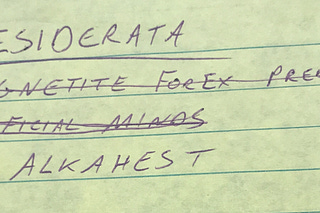 ESIDERATA
GNETITE FOREX PREC
FICIAL MINDS
ALKAHEST